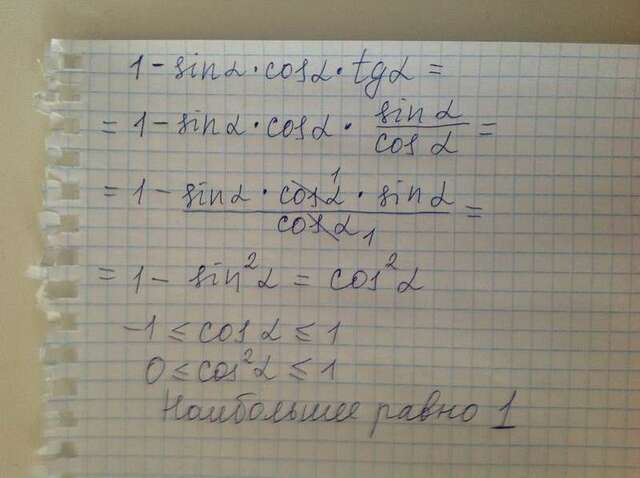 1 - sinα · cosα · tgα =
= 1 - sinα · cosα · sinα / cosα =
= 1 - sinα · cosα 1 · sinα / cosα 1 =
= 1 - sin²α = cos²α
-1 ≤ cosα ≤ 1
0 ≤ cos²α ≤ 1
Наибольшее равно 1